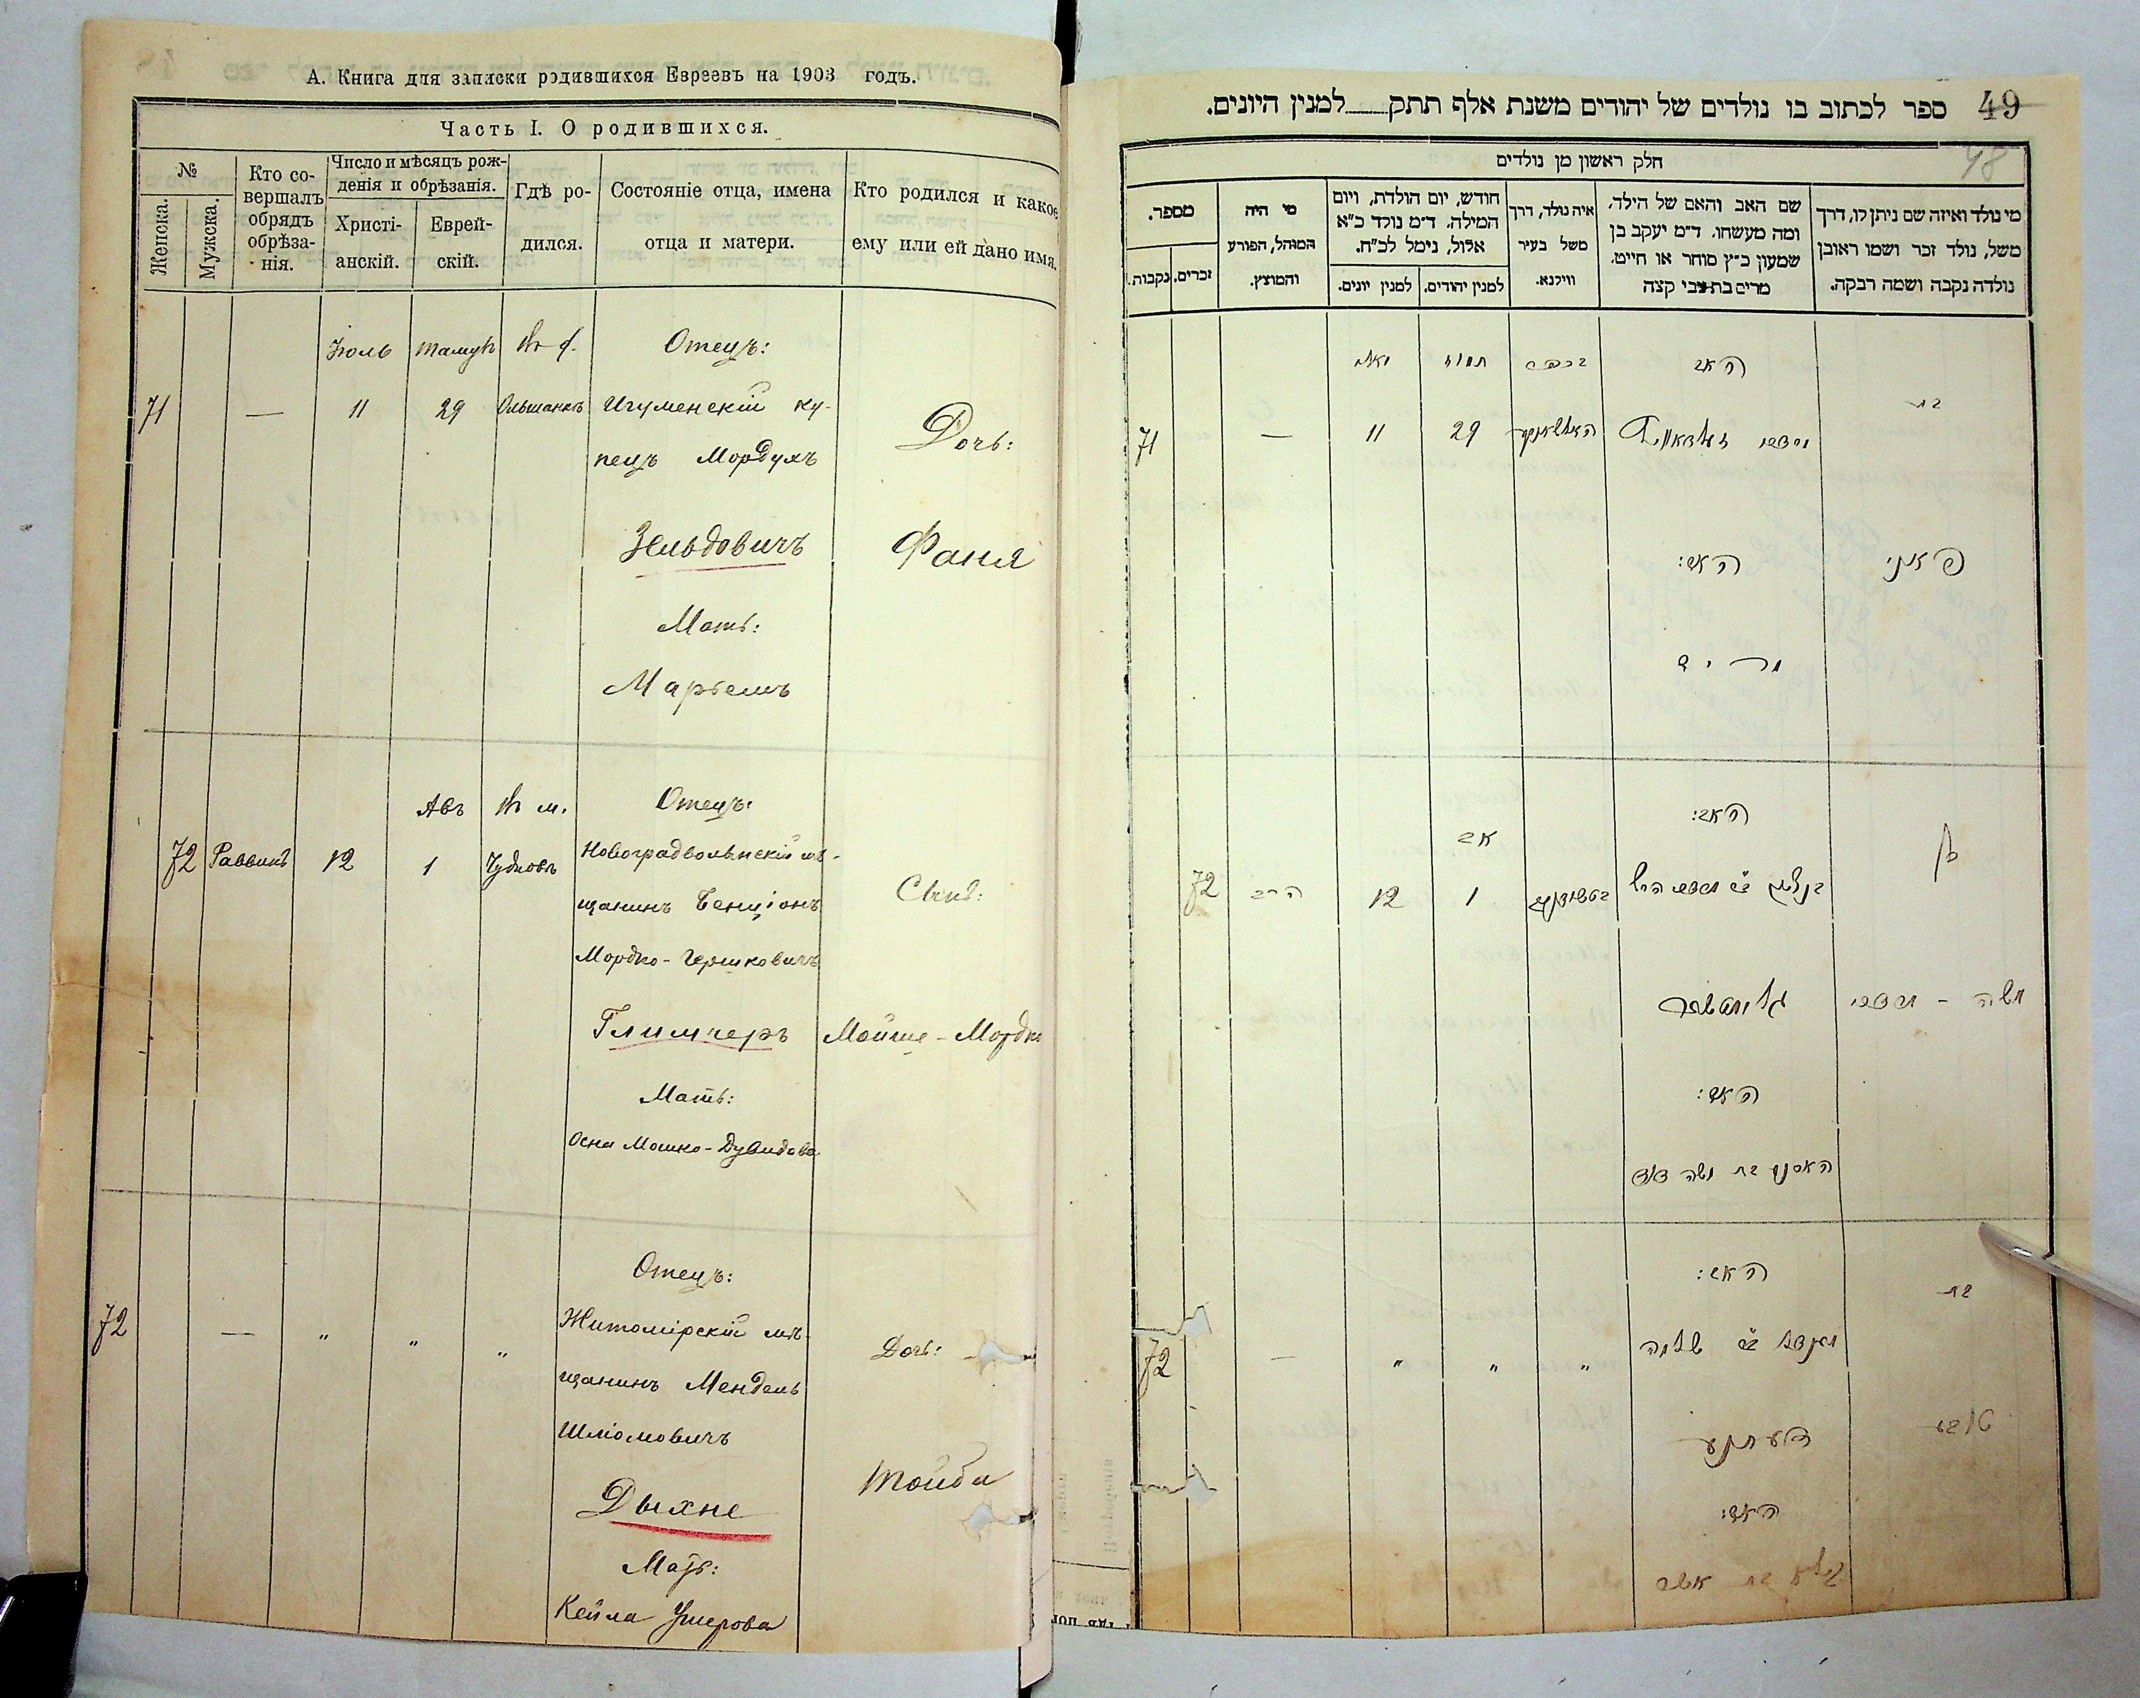 А. Книга для записки родившихся Евреевъ на 1903 годъ.
Часть I. О родившихся.
№
Женска.
Мужска.
Кто со-
вершалъ
обрядъ
обрѣза-
нія.
Число и мѣсяцъ рож-
денія и обрѣзанія.
Христі-
анскій.
Еврей-
скій.
Гдѣ ро-
дился.
Состояніе отца, имена
отца и матери.
Кто родился и какое
ему или ей дано имя.
71
—
Іюль
11
29
Отецъ:
Игуменскій ку-
пецъ Мордухъ
Зельдовичъ
Мать:
Дочь:
Фаня
72
Раввинъ
12
Авъ
1
Въ м.
Чудновъ
Отецъ:
Новоградволынскій мѣ-
щанинъ Бенціонъ
Мордко-Гершковичъ
Глимчеръ
Мать:
Осна Мошко-Дувидова
Сынъ:
Мойше-Мордко
72
—
"
"
"
Отецъ:
Житомірскій мѣ-
щанинъ Мендель
Шліомовичъ
Дыхне
Мать:
Кейла Ушерова
Дочь:
Тойба
49
ספר לכתוב בו נולדים של יהודים משנת אלף תתק למנין היונים.
48
חלק ראשון מן נולדים
מי נולד ואיזה שם ניתן לו, דרך
משל, נולד זכר ושמו ראובן
נולדה נקבה ושמה רבקה.
שם האב והאם של הילד,
ומה מעשהו. ד״מ יעקב בן
שמעון כ״ץ סוחר או חייט.
מרים בת צבי קצה
איה נולד, דרך
משל בעיר
ווילנא.
חודש, יום הולדת, ויום
המילה. ד״מ נולד כ״א
אלול, נימל לכ״ח.
למנין יהודים.
למנין יונים.
מי היה
המוהל, הפורע
והמוצץ.
מספר.
זכרים.
נקבות.
בת
פאני
האב
מרדכי זעלדאוויץ
האם:
מרים
תמוז
29
11
—
71
בן
משה - מרדכי
האב:
גלימטשער
האם:
בת משה דוד
אב
1
12
הרב
72
בת
טויבע
האב:
מענדעל ב״ר שלמה
האם:
קילא בת אשר
"
"
"
—
72